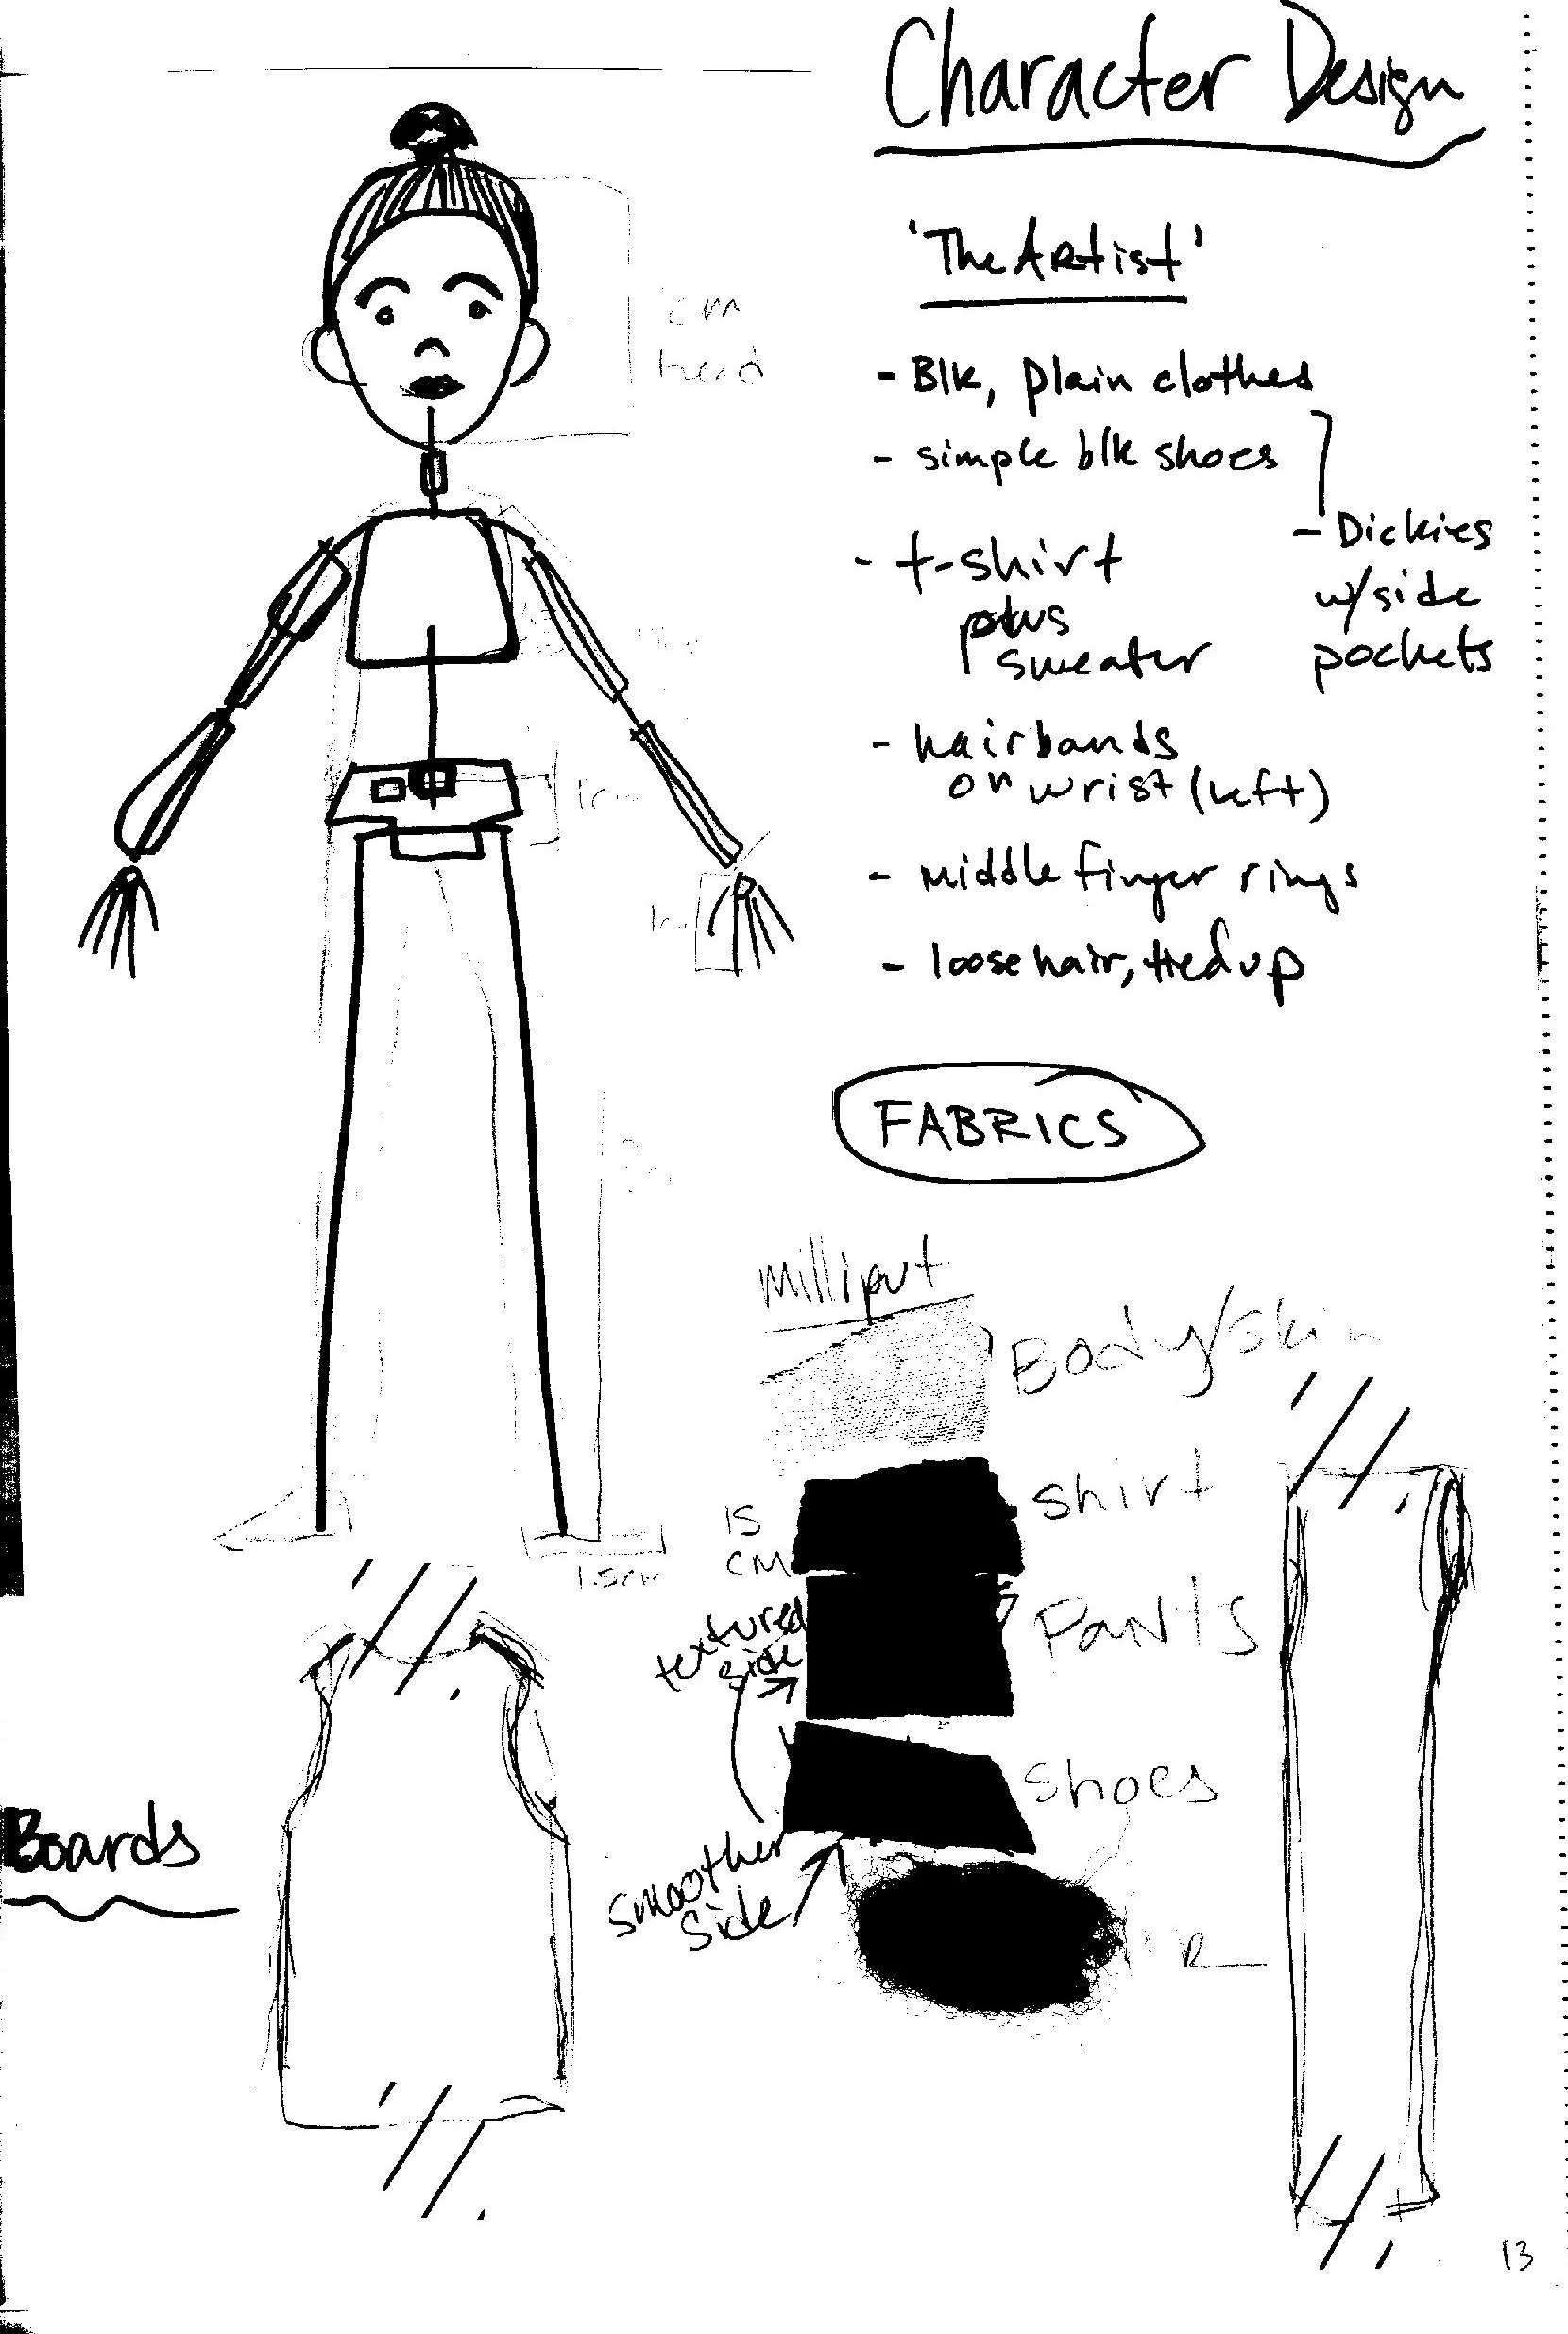 Character Design
'The Artist'
- Blk, plain clothes
- simple blk shoes
- Dickies
w/side
pockets
- t-shirt
plus
sweater
- hairbands
on wrist (left)
- middle finger rings
- loose hair, tied up
cm
head
FABRICS
milliput
Body/skin
shirt
15
CM
1.5cm
textured
side
Pants
shoes
smoother
side
Boards
13